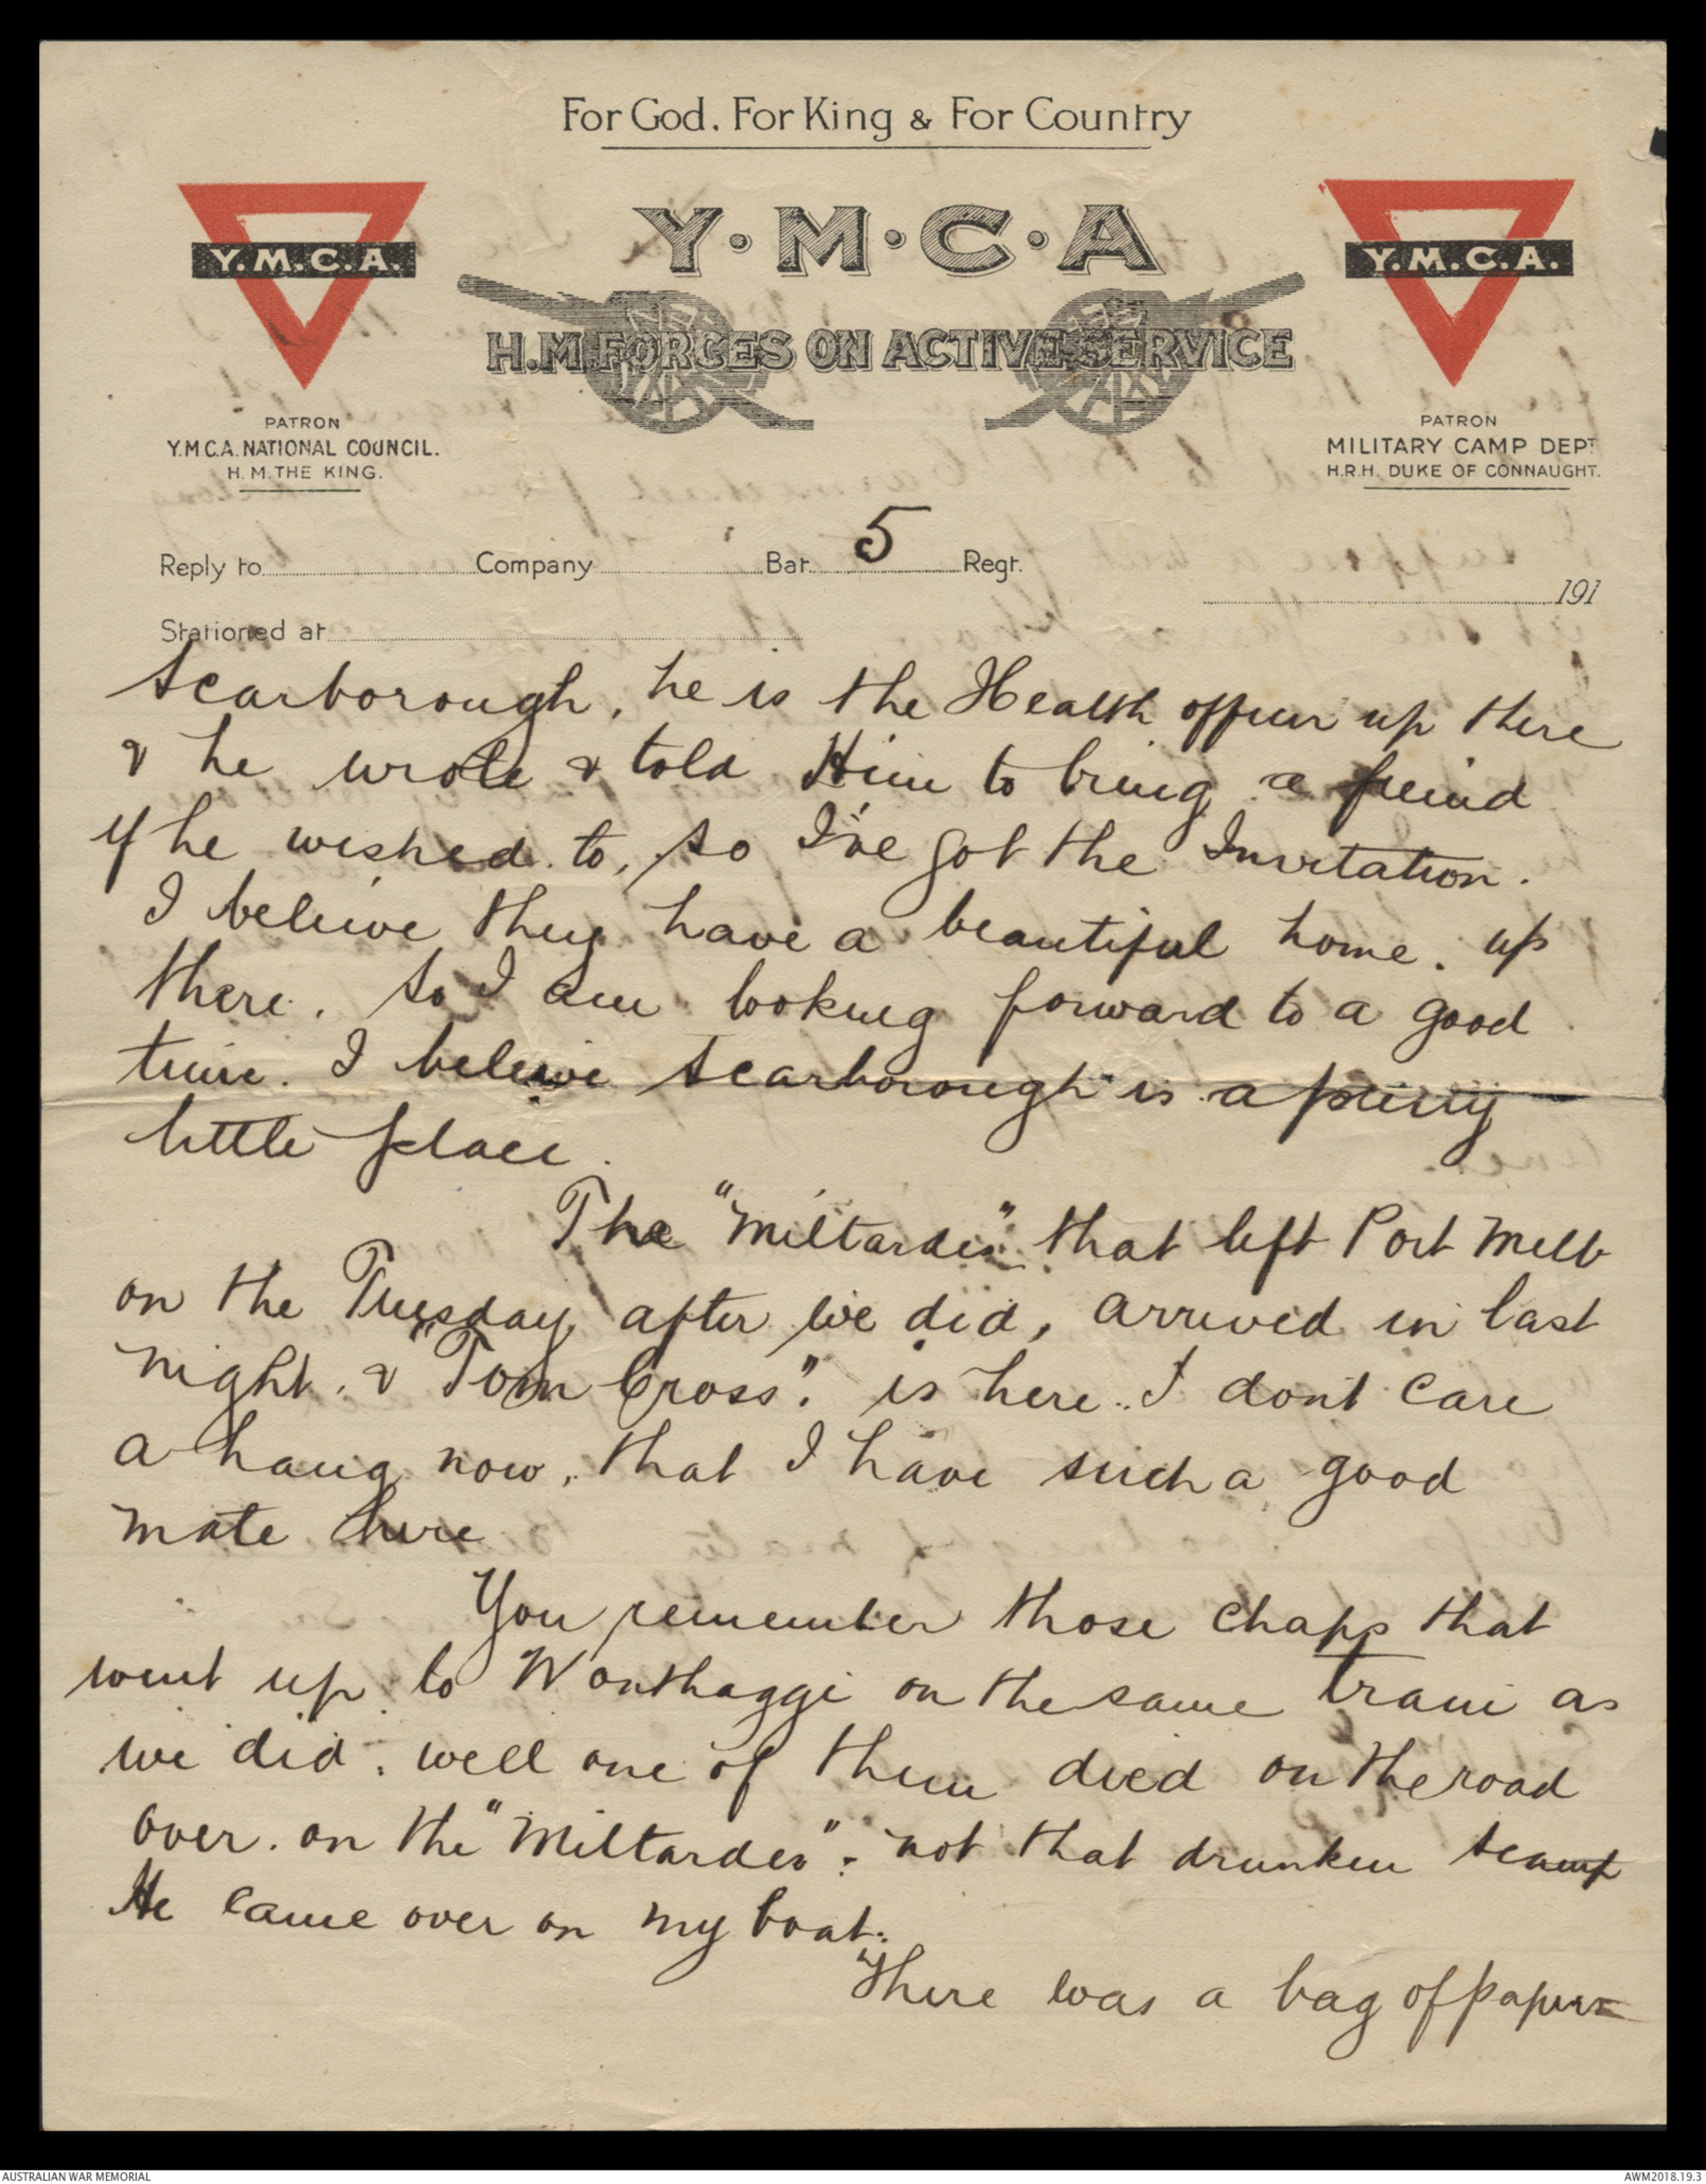 For God, For King & For Country
Y·M·C·A
H.M. FORCES ON ACTIVE SERVICE
Y.M.C.A.
Y.M.C.A.
PATRON
Y.M.C.A. NATIONAL COUNCIL.
H.M. THE KING.
PATRON
MILITARY CAMP DEPT.
H.R.H. DUKE OF CONNAUGHT.
5
Reply to Company Bat. Regt.
191
Stationed at
Scarborough, he is the Health officer up there
& he wrote & told Him to bring a freind
if he wished to, so I've got the Invitation.
I beleive they have a beautiful home. up
there. So I am looking forward to a good
time. I beleive Scarborough is a pretty
little place.
The "Miltardes" that left Port Melb
on the Tuesday after we did, arrived in last
night, & "Tom Cross". is here. I dont care
a hang now, that I have such a good
mate here
You remember those chaps that
went up to Wonthaggi on the same train as
we did. well one of them died on the road
over. on the "Miltardes". not that drunken scamp
He came over on my boat.
There was a bag of papers
AUSTRALIAN WAR MEMORIAL
AWM2018.19.3